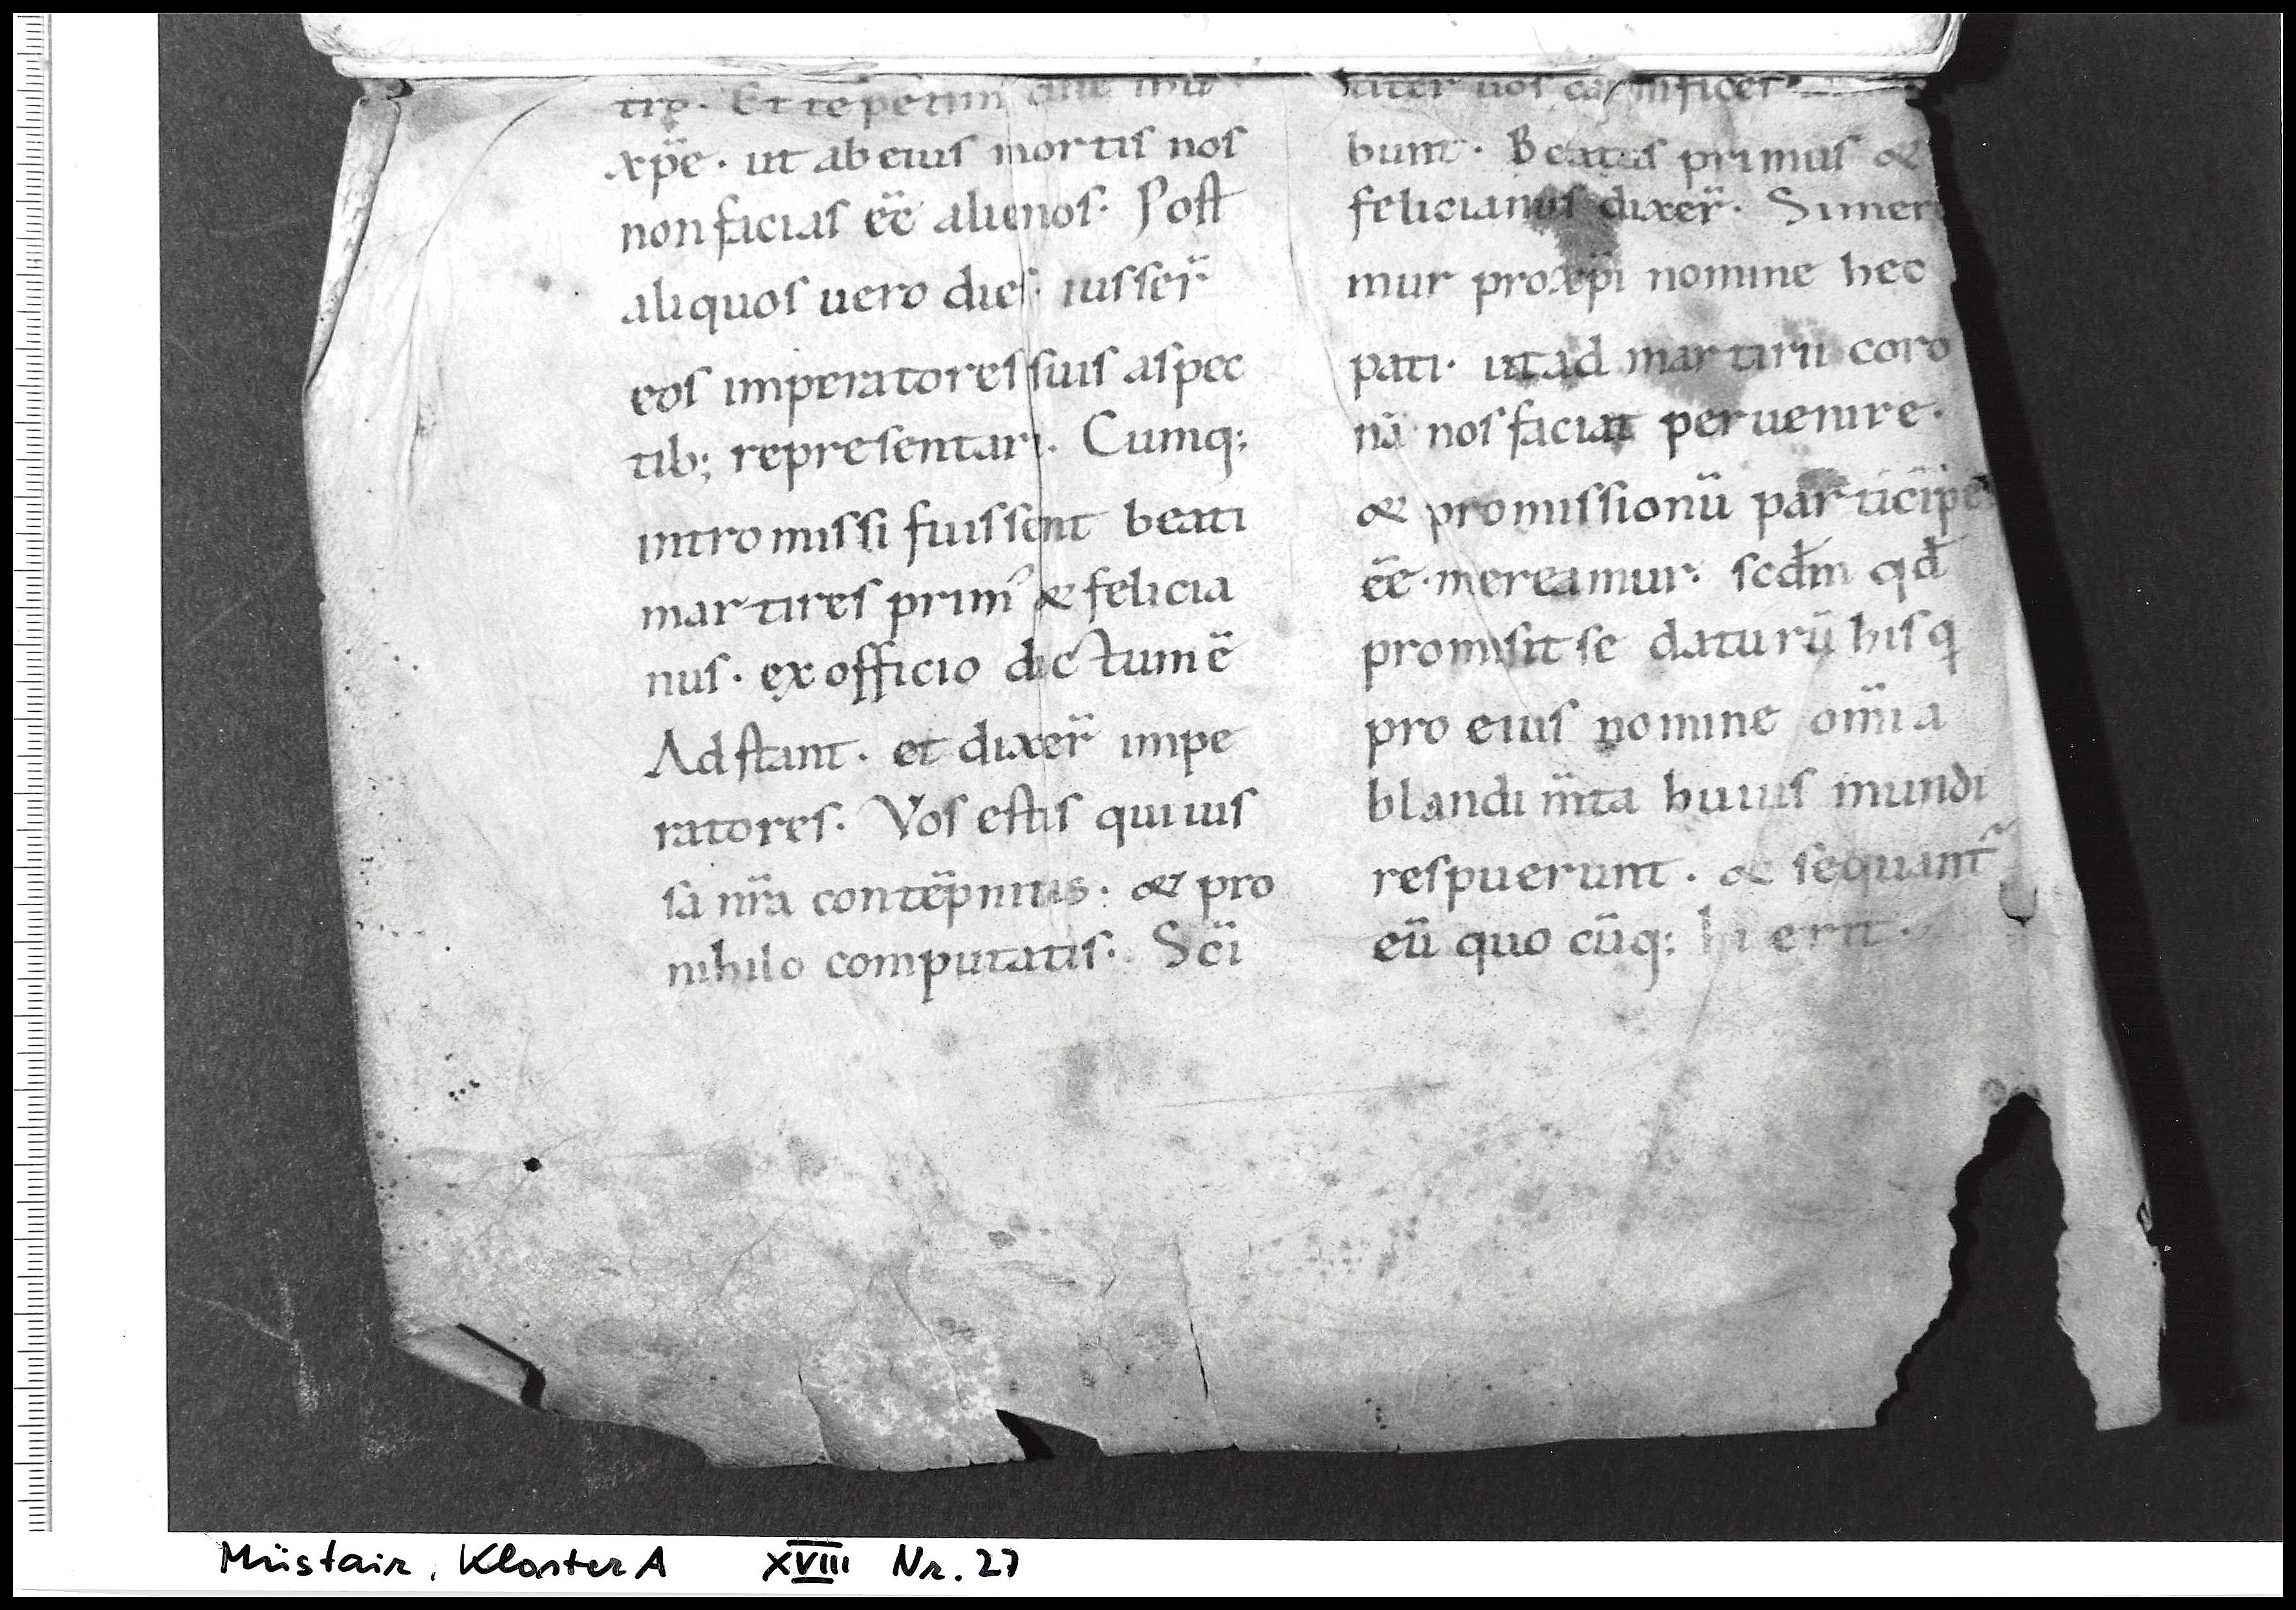 tre. Et te petim
xp̄e · ut ab eius mortis nos
non facias ēē alienos. Post
aliquos uero dies. iusser̄
eos imperatores suis aspec
tib; representari. Cumq;
intromissi fuissent beati
martires prim᾽ & felicia
nus · ex officio dictum ē
Adstant · et dixer̄ impe
ratores. Vos estis qui ius
sa nr̄a contēpnitis · & pro
nihilo computatis. Sc̄i
uos carnifices
bunt · Beatus primus &
felicianus dixer̄. Si mer
mur pro xp̄i nomine hec
pati · ut ad martirii coro
nā nos faciat peruenire.
& promissionū participe
ēē mereamur. scdm̄ qđ
promisit se daturū his q
pro eius nomine om̄ia
blandim̄ta huius mundi
respuerunt · & sequant᷑
eū quo cūq; erit ·
Müstair, Kloster A XVIII Nr. 27